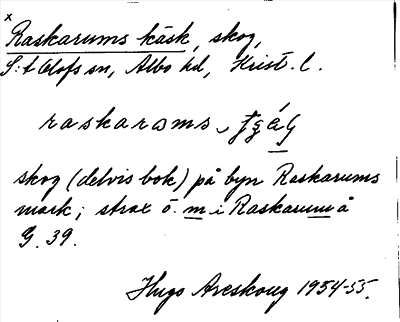 x
Raskarums käsk, skog,
S:t Olofs sn, Albo hd, Krist. l.
raskarams
skog (delvis bok) på byn Raskarums
mark; strax ö. m i Raskarum å
G. 39.
Hugo Areskoug 1954-55.